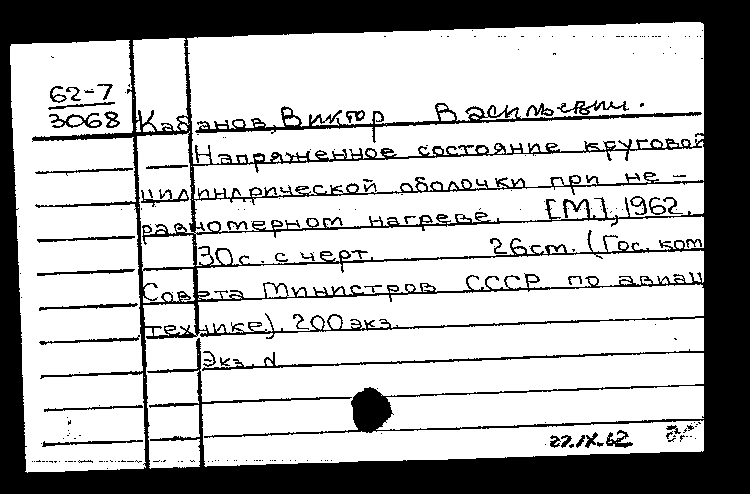 62-7
3068 Кабанов, Виктор Васильевич.
Напряженное состояние круговой
цилиндрической оболочки при не-
равномерном нагреве. [М.], 1962.
30с. с черт. 26см. (Гос. ком
Совета Министров СССР по авиац
технике). 200экз.
Экз. N
22.IX.62